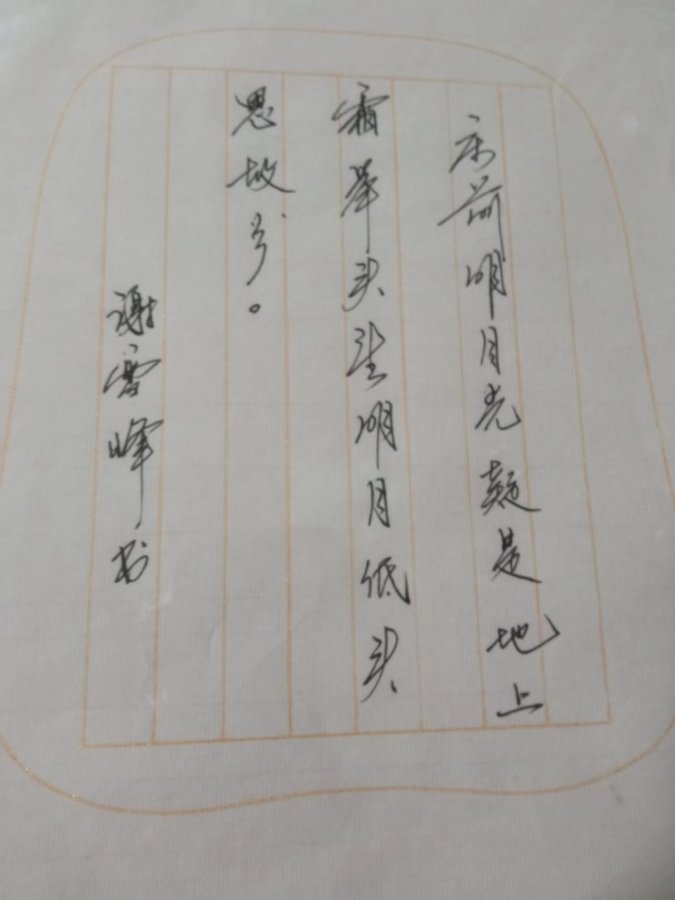 床前明月光疑是地上
霜举头望明月低头
思故乡。
谢雪峰书